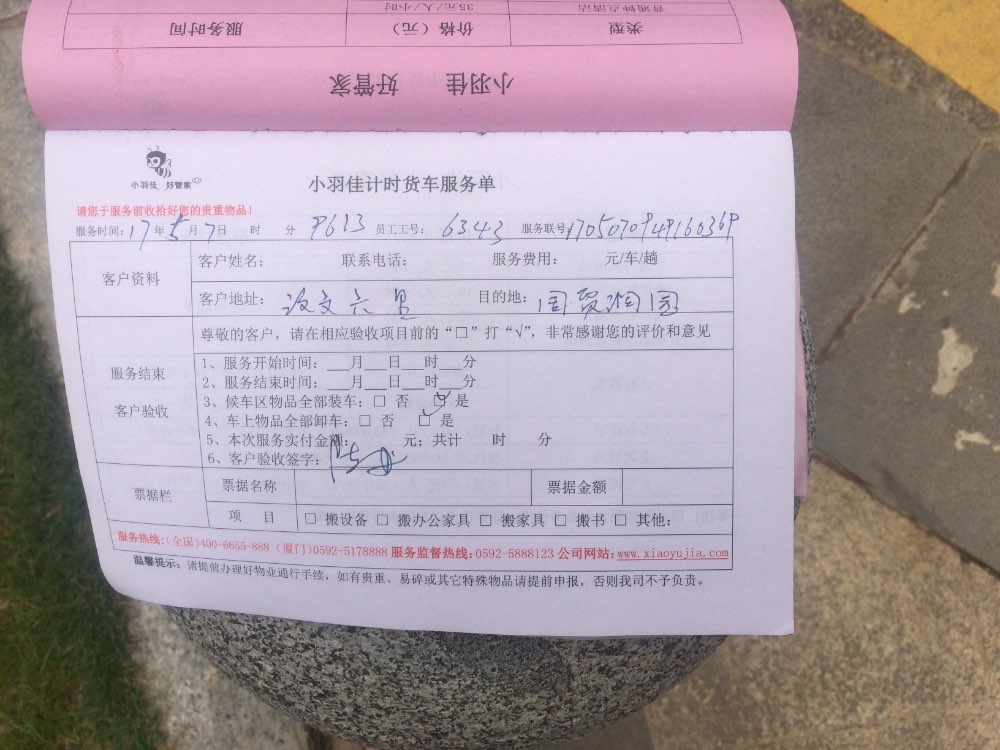 普通钟点清洁 35元/人/小时
类型 价格（元） 服务时间
小羽佳 好管家
小羽佳 好管家
小羽佳计时货车服务单
请您于服务前收拾好您的贵重物品！
服务时间：17年5月7日 时 分 P613 员工工号： 6343 服务联号
客户资料
客户姓名： 联系电话： 服务费用： 元/车/趟
客户地址： 目的地： 国贸润园
尊敬的客户，请在相应验收项目前的“□”打“√”，非常感谢您的评价和意见
服务结束
客户验收
1、服务开始时间：___月___日___时___分
2、服务结束时间：___月___日___时___分
3、候车区物品全部装车：□ 否 □ 是
4、车上物品全部卸车：□ 否 □ 是
5、本次服务实付金额： 元；共计 时 分
6、客户验收签字：
票据栏
票据名称 票据金额
项 目 □ 搬设备 □ 搬办公家具 □ 搬家具 □ 搬书 □ 其他：
服务热线：（全国）400-6655-888（厦门）0592-5178888 服务监督热线：0592-5888123 公司网站：www.xiaoyujia.com
温馨提示：请提前办理好物业通行手续，如有贵重、易碎或其它特殊物品请提前申报，否则我司不予负责。